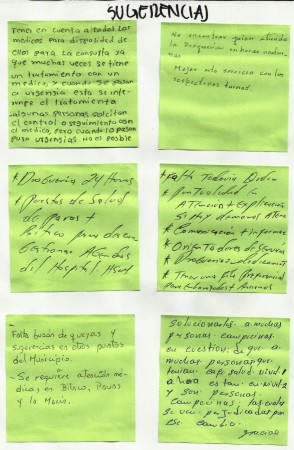 SUGERENCIAS
Tener en cuenta a todos los
medicos para disposidad de
ellos para la consulta ya
que muchas veces se tiene
un tratamiento con un
medico, y cuando se pasan
a urgencia esta se inte-
rumpe el tratamiento
algunas personas solicitan
el control o seguimiento con
el medico, pero cuando lo pasan
para urgencias no es posible
No encontrar quien atienda
la Drogueria en horas noctur-
nas
Mejor servicio con los
respectivos turnos.
* Drogueria 24 Horas
* Puestos de Salud
de Paros +
para
Gestionar Agendas
del Hospital
* Falta Todavia Orden
* Puntualidad en
Atencion + Explicación
si hay demoras
* Comunicación + Informar
* Orientadores de servicio
*
* Tener una fila Preferencial
para Embarazadas + Ancianos
- Falta buzón de quejas y
sugerencias en otros puntos
del Municipio.
- Se requiere atención mé-
dica, en Bilsco, Pavos
y la María.
solucionarles a muchas
personas campecinas
en cuestion de que a
muchas personas que
tenian cap salud nivel 1
ahora estan en nivel 2
y son personas
campecinas, las cuales
se ven perjudicadas por
ese cambio.
gracias